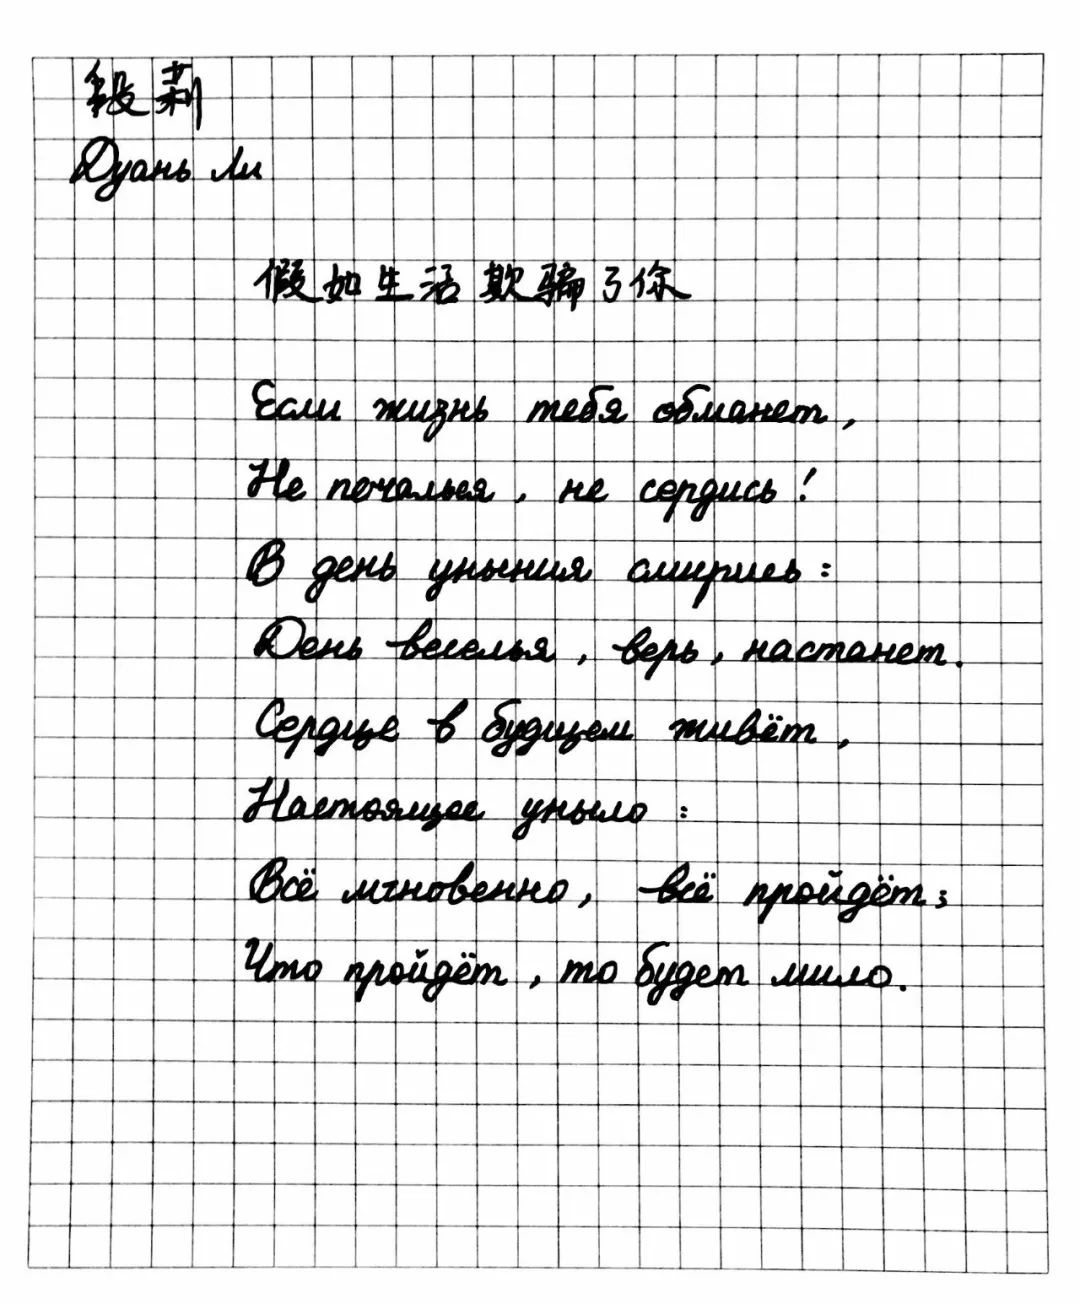 段莉
Дуань Ли
假如生活欺骗了你
Если жизнь тебя обманет,
Не печалься, не сердись!
В день уныния смирись:
День веселья, верь, настанет.
Сердце в будущем живёт,
Настоящее уныло:
Всё мгновенно, всё пройдёт;
Что пройдёт, то будет мило.